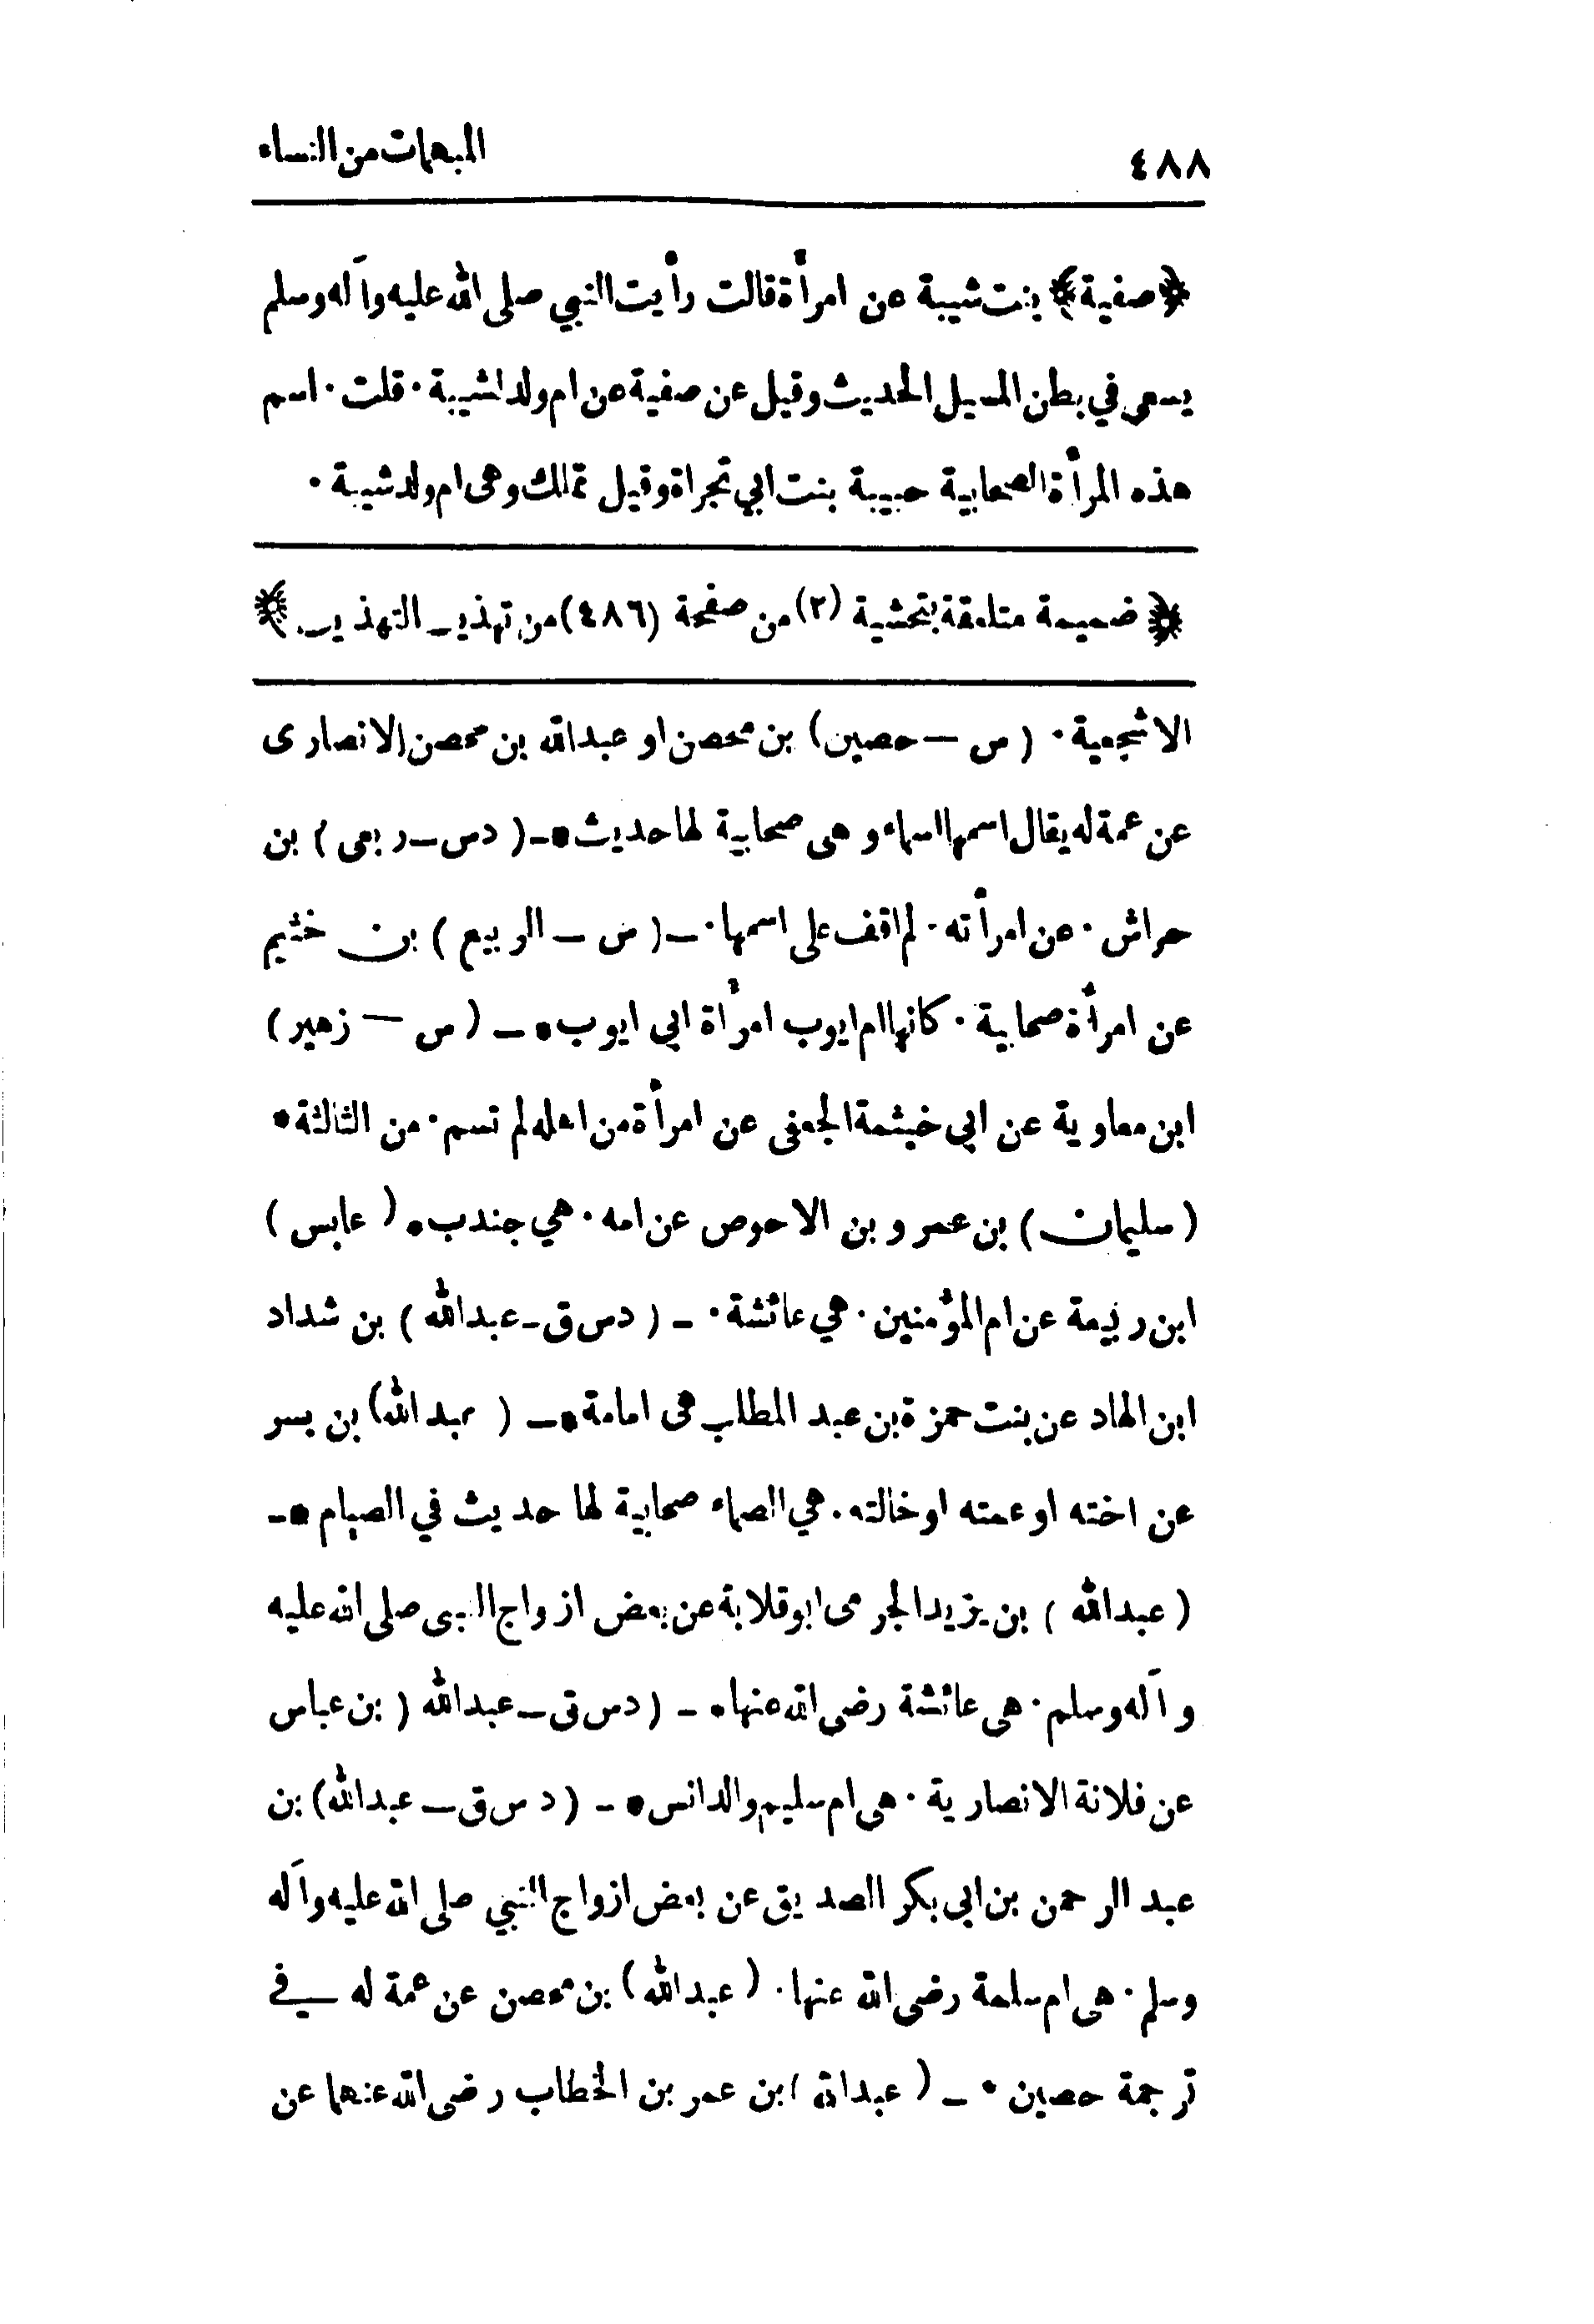 ٤٨٨ المبهمات من النساء
﴿صفية﴾ بنت شيبة عن امرأة قالت رأيت النبي صلى الله عليه وآله وسلم
يسعى في بطن المسيل الحديث وقيل عن صفية عن ام ولد لشيبة · قلت · اسم
هذه المرأة الصحابية حبيبة بنت ابي تجراة وقيل تملك وهى ام ولد شيبة ·
﴿ضميمة متعلقة بتحشية (٢) من صفحة (٤٨٦) من تهذيب التهذيب﴾
الاشجعية · (س — حصين) بن محصن او عبدالله بن محصن الانصارى
عن عمة له يقال اسمها اسماء و هى صحابية لها حديث * - ( دس – ربعى ) بن
حراش · عن امرأته · لم اقف على اسمها · – ( س – الربيع ) بن خثيم
عن امرأة صحابية · كانها ام ايوب امرأة ابى ايوب * – ( س — زهير )
ابن معاوية عن ابى خيثمة الجعفى عن امرأة من اهله لم تسم · من الثالثة *
( سليمان ) بن عمرو بن الاحوص عن امه · هي جندب * ( عابس )
ابن ربيعة عن ام المؤمنين · هي عائشة · – ( دس ق – عبدالله ) بن شداد
ابن الهاد عن بنت حمزة بن عبد المطلب هى امامة * – ( عبدالله ) بن بسر
عن اخته او عمته او خالته · هي الصماء صحابية لها حديث في الصيام * –
( عبدالله ) بن يزيد الجرمى ابو قلابة عن بعض ازواج النبى صلى الله عليه
وآله وسلم · هى عائشة رضى الله عنها * – ( دس ق – عبدالله ( بن عباس
عن فلانة الانصارية · هى ام سليم والد انس * – ( د س ق – عبدالله ) بن
عبد الرحمن بن ابى بكر الصديق عن بعض ازواج النبي صلى الله عليه وآله
وسلم · هى ام سلمة رضى الله عنها · ( عبدالله ) بن محصن عن عمة له في
ترجمة حصين * – ( عبدالله ) بن عمر بن الخطاب رضى الله عنهما عن